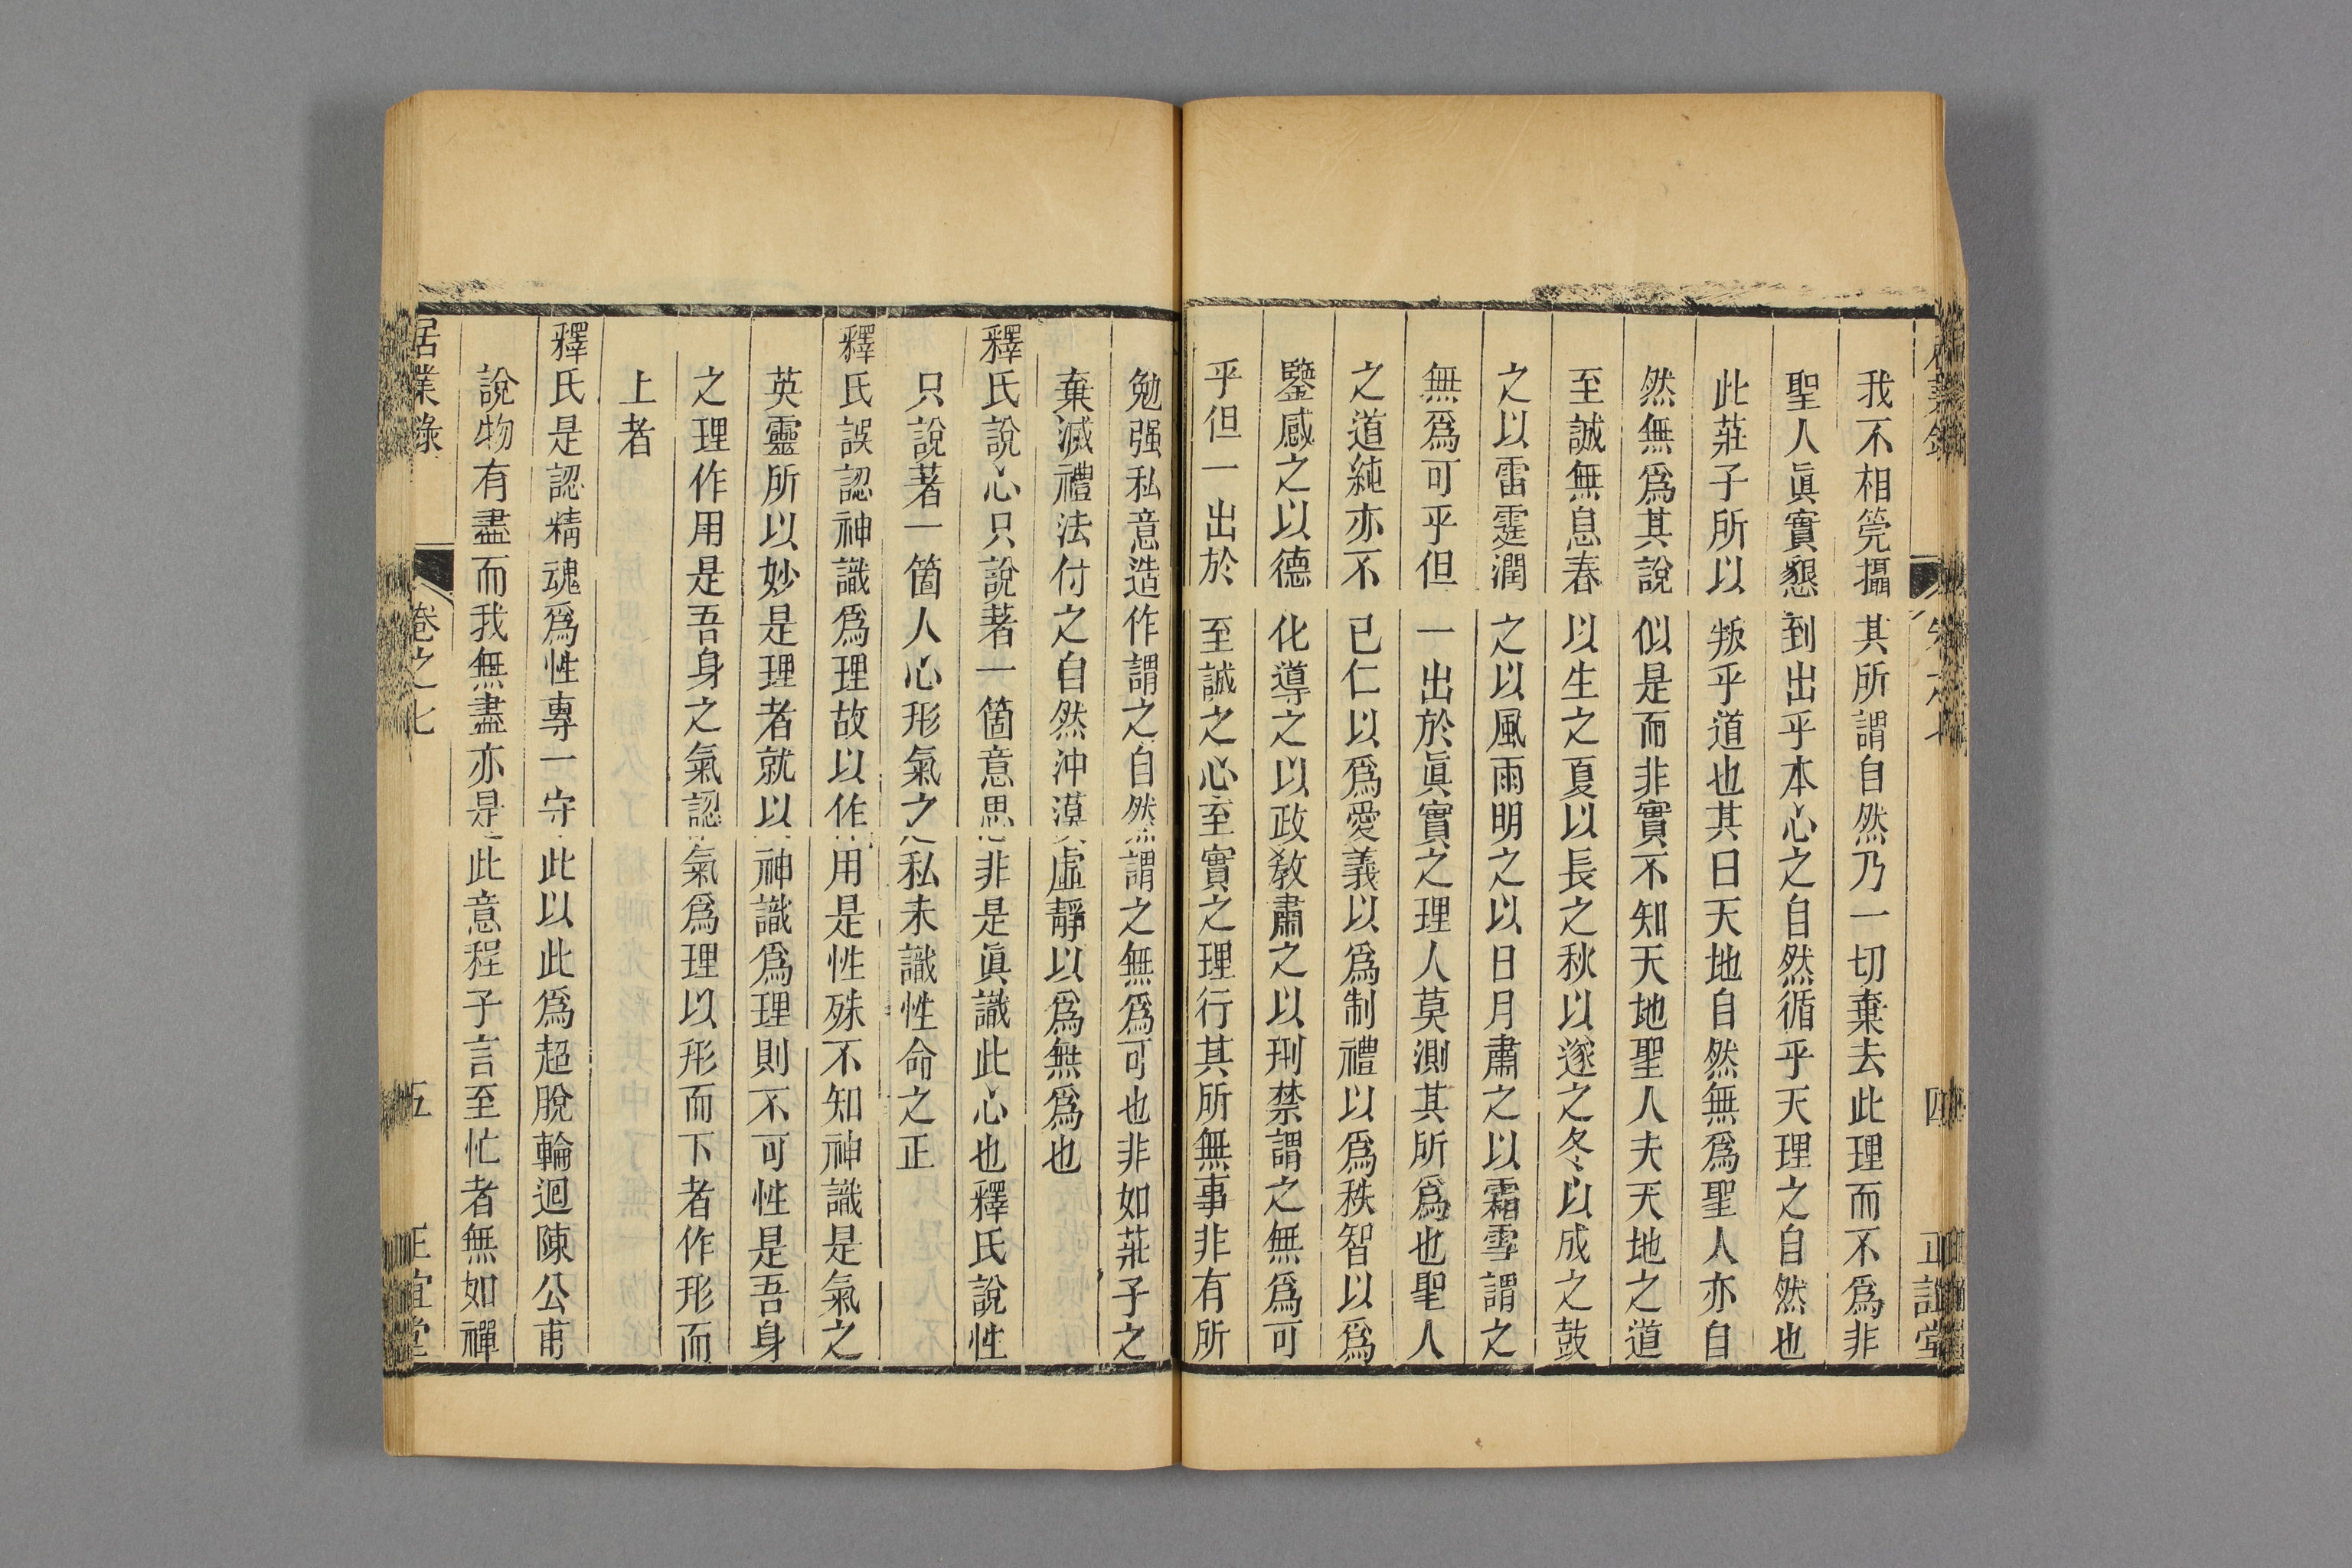 我不相筦攝其所謂自然乃一切棄去此理而不爲非
聖人眞實懇到出乎本心之自然循乎天理之自然也
此莊子所以叛乎道也其曰天地自然無爲聖人亦自
然無爲其說似是而非實不知天地聖人夫天地之道
至誠無息春以生之夏以長之秋以遂之冬以成之鼓
之以雷霆潤之以風雨明之以日月肅之以霜雪謂之
無爲可乎但一出於眞實之理人莫測其所爲也聖人
之道純亦不已仁以爲愛義以爲制禮以爲秩智以爲
鑒感之以德化導之以政敎肅之以刑禁謂之無爲可
乎但一出於至誠之心至實之理行其所無事非有所
勉强私意造作謂之自然謂之無爲可也非如莊子之
棄滅禮法付之自然沖漠虛靜以爲無爲也
釋氏說心只說著一箇意思非是眞識此心也釋氏說性
只說著一箇人心形氣之私未識性命之正
釋氏誤認神識爲理故以作用是性殊不知神識是氣之
英靈所以妙是理者就以神識爲理則不可性是吾身
之理作用是吾身之氣認氣爲理以形而下者作形而
上者
釋氏是認精魂爲性專一守此以此爲超脫輪迴陳公甫
說物有盡而我無盡亦是此意程子言至忙者無如禪
居業錄 卷之七 五 正誼堂